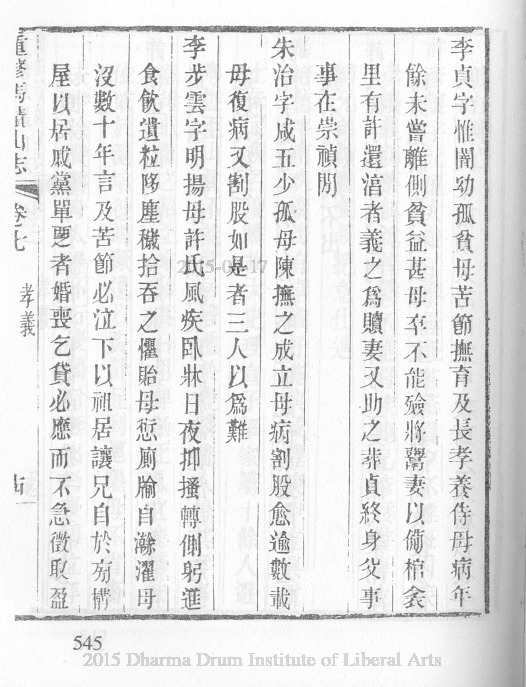 李貞字惟闇幼孤貧母苦節撫育及長孝養侍母病年
餘未嘗離側貧益甚母卒不能殮將鬻妻以備棺衾
里有許還淯者義之為贖妻又助之葬貞終身父事
事在崇禎間
朱治字咸五少孤母陳撫之成立母病割股愈逾數載
母復病又割股如是者三人以為難
李步雲字明揚母許氏風疾臥牀日夜抑搔轉側躬進
食飲遺粒陊塵穢拾吞之懼貽母愆廁牏自澣濯母
沒數十年言及苦節必泣下以祖居讓兄自於旁構
屋以居戚黨單寠者婚喪乞貸必應而不急徵取盈
重修馬蹟山志
卷七
孝義
古
2015-03-17
545
2015 Dharma Drum Institute of Liberal Arts